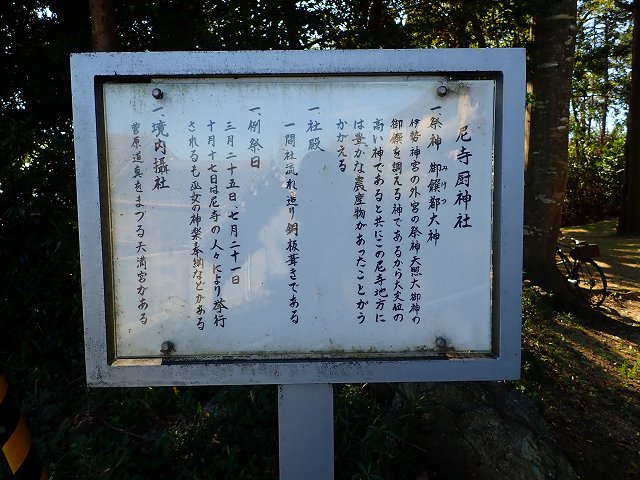 尼寺厨神社
一祭神 御饌都大神
みけつ
伊勢神宮の外宮の祭神天照大御神の
御饌を調える神であるから大変位の
高い神であると共にこの尼寺地方に
は豊かな農産物があったことがう
かがえる
一社殿
一間社流れ造り銅板葺きである
一例祭日
三月二十五日七月二十一日
十月十七日は尼寺の人々により挙行
されるも巫女の神楽奉納などがある
一境内攝社
菅原道真をまつる天満宮がある